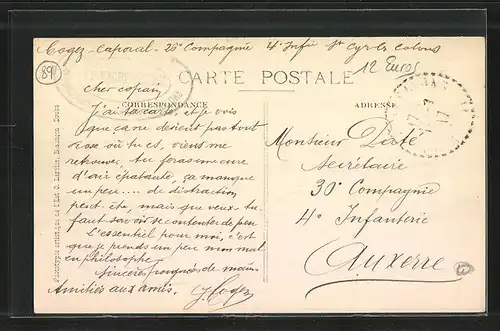 Cogez - Caporal - 28e Compagnie 4e Infie St Cyr les Colons
12 Euros
89
CARTE POSTALE
CORRESPONDANCE
ADRESSE
Cher copain,
J'ai ta carte, et je vois
que ça ne devient pas tout
rose où tu es, viens me
retrouver, tu feras une cure
d'air épatante, ça manque
un peu .... de distraction
peut-être, mais que veux-tu
faut savoir se contenter de peu
L'essentiel pour moi, c'est
que je prends un peu mon mal
en philosophe.
Sincères poignées de mains.
Amitiés aux amis. J Cogez
Monsieur
Secrétaire
30e Compagnie
4e Infanterie
Auxerre
17